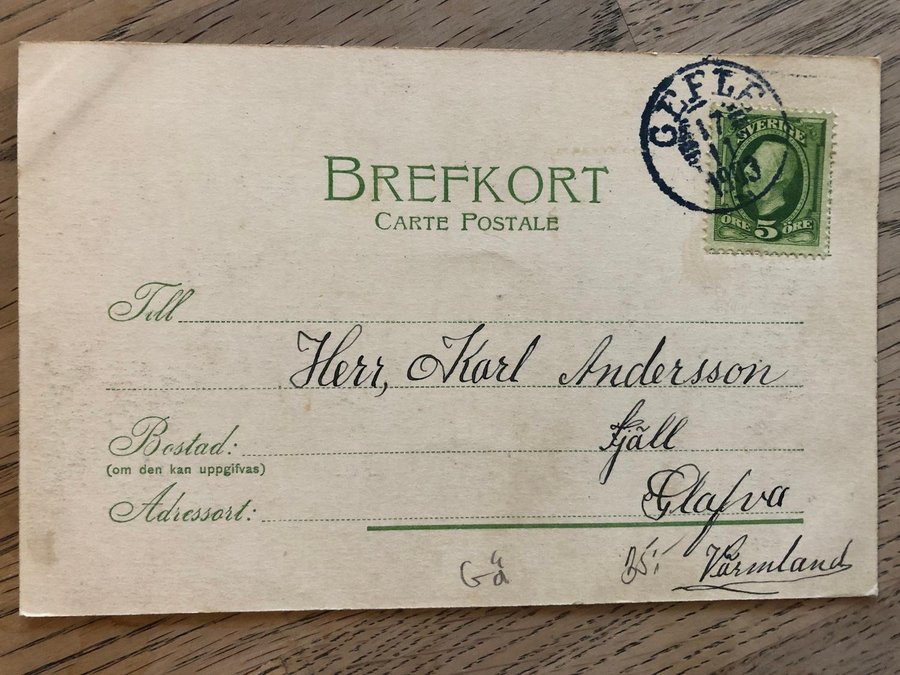 GEFLE
17
11
1903
SVERIGE
ÖRE 5 ÖRE
BREFKORT
CARTE POSTALE
Till
Herr, Karl Andersson
Bostad: Fjäll
(om den kan uppgifvas)
Adressort: Glafva
Värmland
Gä